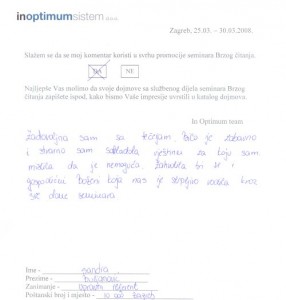 inoptimumsistem d.o.o.
Zagreb, 25.03. – 30.03.2008.
Slažem se da se moj komentar koristi u svrhu promocije seminara Brzog čitanja.
DA NE
Najljepše Vas molimo da svoje dojmove sa službenog dijela seminara Brzog
čitanja zapišete ispod, kako bismo Vaše impresije uvrstili u katalog dojmova.
In Optimum team
Zadovoljna sam sa tečajem. Bilo je zabavno
i stvarno sam savladala vještinu za koju sam
mislila da je nemoguća. Zahvalila bi se i
gospodinu koja nas je strpljivo vodila kroz
sve dane seminara.
Ime - Sandra
Prezime -
Zanimanje - referent
Poštanski broj i mjesto - 10 000 Zagreb